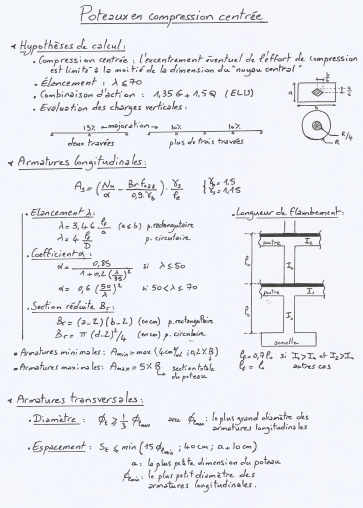 Poteaux en compression centrée
Hypothèses de calcul :
• Compression centrée : l'excentrement éventuel de l'effort de compression
est limité à la moitié de la dimension du "noyau central"
• Élancement : λ ≤ 70
• Combinaison d'action : 1,35 G + 1,5 Q (ELU)
• Evaluation des charges verticales :
15% ← majoration → 10% 10%
deux travées plus de trois travées
a
b
R/4
R
Armatures longitudinales :
As = (Nu/α − Br fc28/0,9 γb) γs/fe { γb = 1,5
γs = 1,15
• Elancement λ :
λ = 3,46 lf/a (a ≤ b) p. rectangulaire
λ = 4 lf/D p. circulaire
• Coefficient α :
α = 0,85/(1 + 0,2 (λ/35)²) si λ ≤ 50
α = 0,6 (50/λ)² si 50 < λ ≤ 70
• Section réduite Br :
Br = (a-2)(b-2) (en cm) p. rectangulaire
Br = π (d-2)²/4 (en cm) p. circulaire
• Armatures minimales : Amin = max (4 cm²/ml ; 0,2% B)
• Armatures maximales : Amax = 5% B → section totale
du poteau
• Longueur de flambement :
poutre I2
lo I1
poutre I1
lo
semelle
lf = 0,7 lo si I1 > I1 et I2 > I1
lf = lo autres cas
Armatures transversales :
• Diamètre : φt ≥ 1/3 φlmax avec φlmax : le plus grand diamètre des
armatures longitudinales
• Espacement : St ≤ min (15 φlmin ; 40 cm ; a + 10 cm)
a : la plus petite dimension du poteau
φlmin : le plus petit diamètre des
armatures longitudinales.